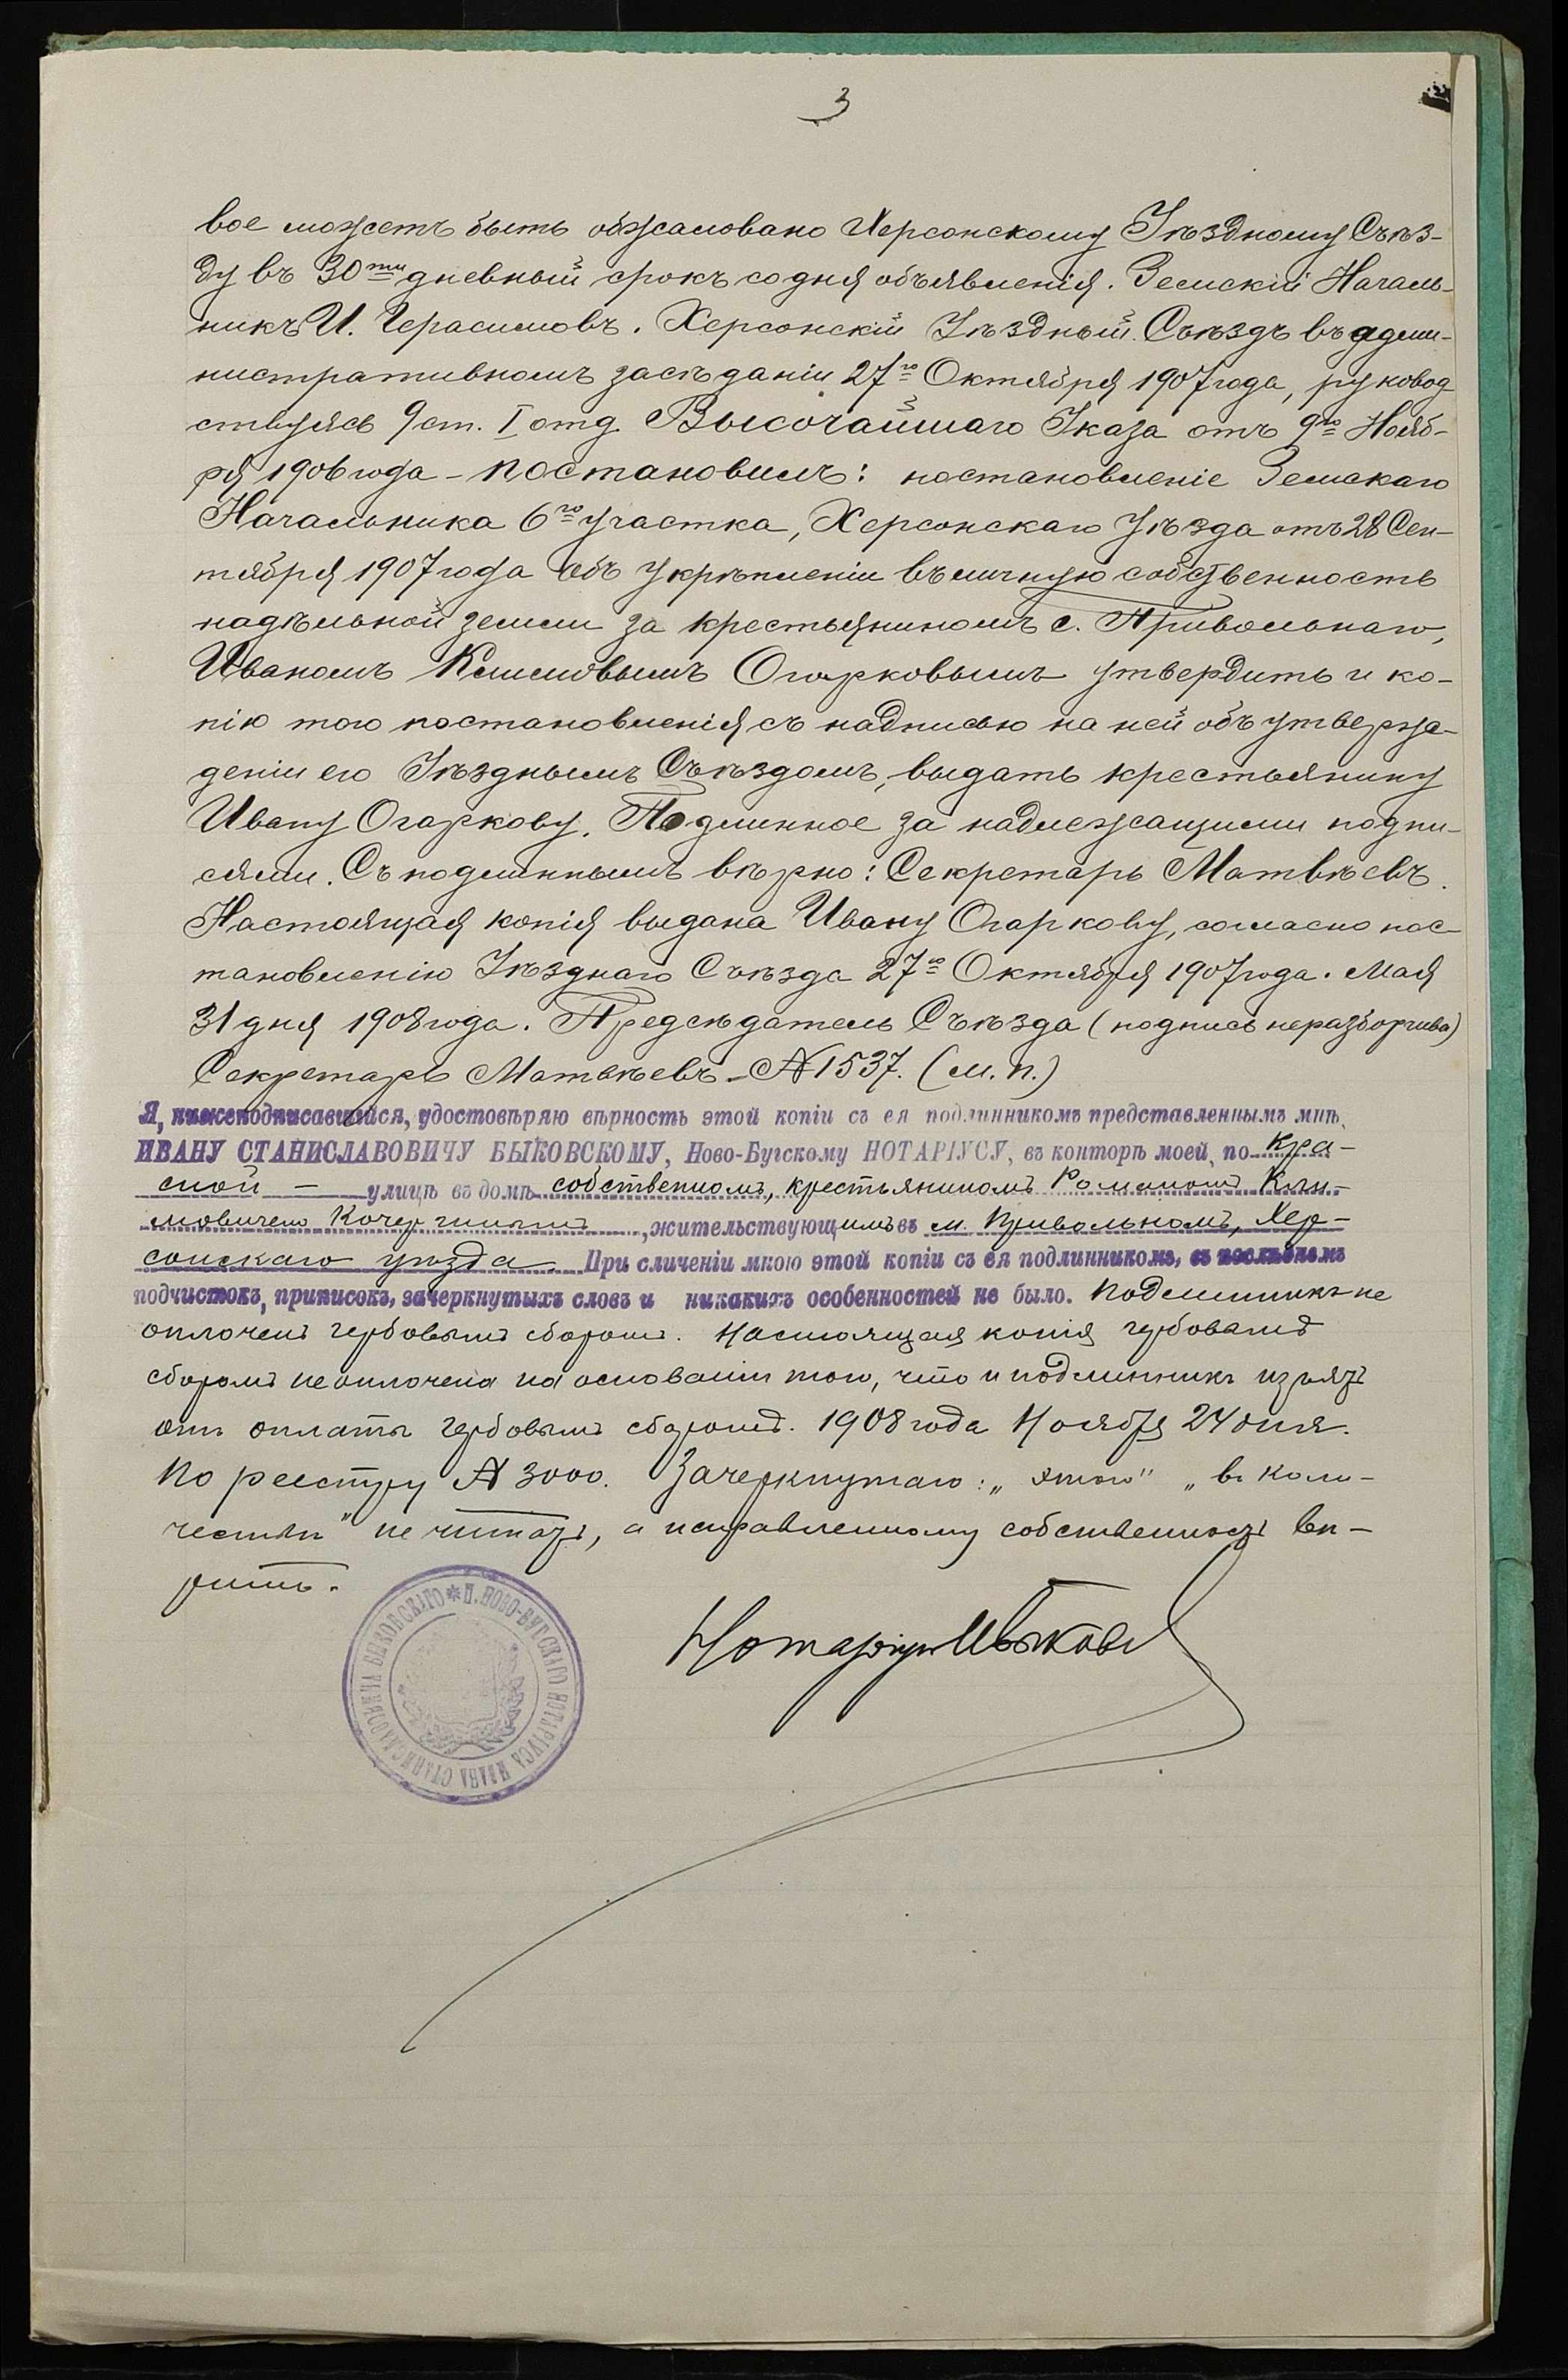 3
вое можетъ быть обжаловано Херсонскому Уѣздному Съѣз-
ду въ 30ти дневный срокъ со дня объявленія. Земскій Началь-
никъ И. Герасимовъ. Херсонскій Уѣздный Съѣздъ въ адми-
нистративномъ засѣданіи 27го Октября 1907 года, руковод
ствуясь 9 ст. I отд. Высочайшаго Указа отъ 9го Нояб-
ря 1906 года - постановилъ: постановленіе Земскаго
Начальника 6го участка, Херсонскаго уѣзда отъ 28 Сен-
тября 1907 года объ укрѣпленіи въ личную собственность
надѣльной земли за крестьяниномъ с. Привольнаго,
Иваномъ Климовымъ Огарковымъ утвердить и ко-
пію того постановленія съ надписью на ней объ утверж-
деніи его Уѣзднымъ Съѣздомъ, выдать крестьянину
Ивану Огаркову. Подлинное за надлежащими подпи-
сями. Съ подлиннымъ вѣрно: Секретарь Матвѣевъ.
Настоящая копія выдана Ивану Огаркову, согласно пос-
тановленію Уѣзднаго Съѣзда 27го Октября 1907 года. Мая
31 дня 1908 года. Предсѣдатель Съѣзда (подпись неразборчива)
Секретарь Матвѣевъ. № 1537. (М. П.)
Я, нижеподписавшійся, удостовѣряю вѣрность этой копіи съ ея подлинникомъ представленнымъ мнѣ,
ИВАНУ СТАНИСЛАВОВИЧУ БЫКОВСКОМУ, Ново-Бугскому НОТАРІУСУ, въ конторѣ моей, по Кра-
сной - улицѣ въ домѣ собственномъ, крестьяниномъ Романомъ Кли-
мовичемъ Кочергинымъ, жительствующимъ въ м. Привольномъ, Хер-
сонскаго уѣзда При сличеніи мною этой копіи съ ея подлинникомъ, въ послѣднемъ
подчистокъ, приписокъ, зачеркнутыхъ словъ и никакихъ особенностей не было. Подлинникъ не
оплоченъ гербовымъ сборомъ. Настоящая копія гербовымъ
сборомъ не оплочена на основаніи того, что и подлинникъ изъятъ
отъ оплаты гербовымъ сборомъ. 1908 года Ноября 24 дня.
По реестру № 3000. Зачеркнутаго: „этого" „въ коли-
чествѣ" не читать, а исправленному собственность вѣ-
рить.
Нотаріусъ Быковск
* П. НОВО-БУГСКАГО НОТАРІУСА ИВАНА СТАНИСЛАВОВИЧА БЫКОВСКАГО